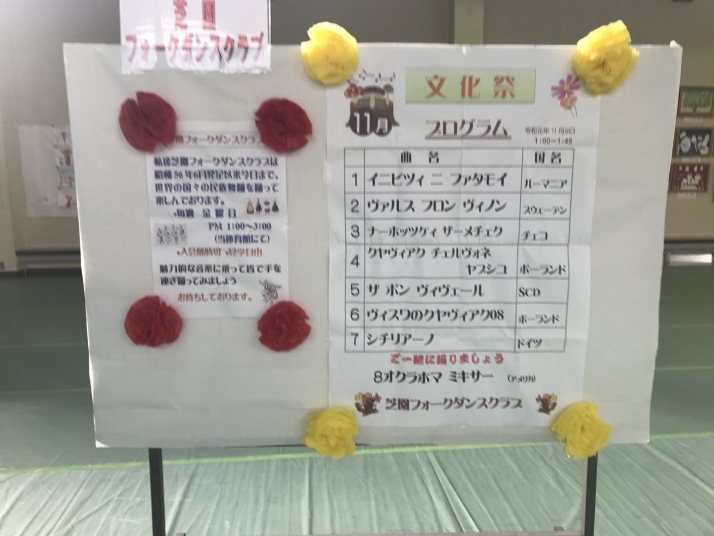 芝園
フォークダンスクラブ
芝園フォークダンスクラブ
私達芝園フォークダンスクラブは
昭和56年6月発足以来今日まで、
世界の国々の民族舞踊を踊って
楽しんでおります。
•毎週 金曜日
PM 1:00〜3:00
(当体育館にて)
•入会随時可 •見学自由
魅力的な音楽に乗って皆で手を
繋ぎ踊ってみましょう
お待ちしております。
文化祭
11月
プログラム
令和元年11月9日
1:00〜1:45
曲名 国名
1 イニビツィ ニ ファタモイ ルーマニア
2 ヴァルス フロン ヴィノン スウェーデン
3 ナーホッツケィ ザーメチェク チェコ
4 クヤヴィアク チェルヴォネ
ヤブシコ ポーランド
5 ザ ボン ヴィヴェール SCD
6 ヴィスワのクヤヴィアク08 ポーランド
7 シチリアーノ ドイツ
ご一緒に踊りましょう
8オクラホマ ミキサー (アメリカ)
芝園フォークダンスクラブ